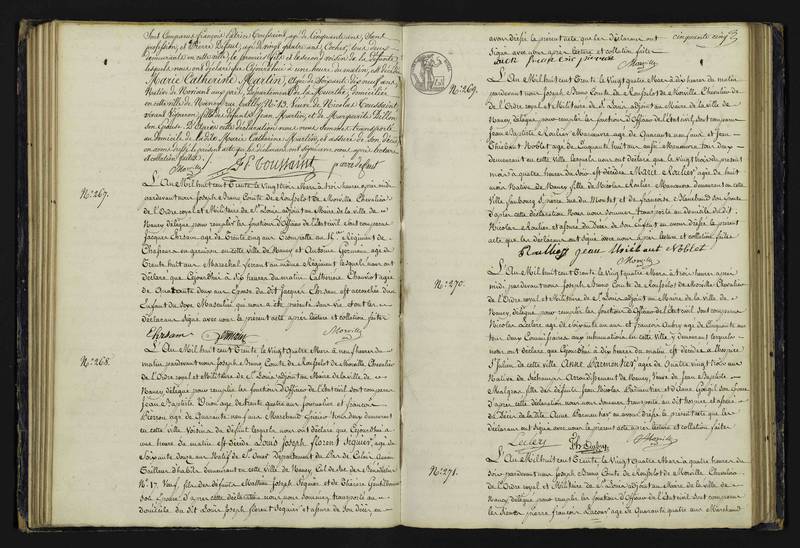 Sont comparus françois Patrice Toussaint, agé de Cinquante ans, Sans
profession, et Pierre Defaut, agé de vingt quatre ans, Cocher, tous deux
demeurants en cette ville, le premier fils et le second voisin de la Défunte,
lesquels nous ont déclaré que Cejourd'hui à une heure du matin, est décédée
Marie Catherine Martin, agée de Soixante dix neuf ans,
Native de département de la Meurthe, domiciliée
en cette ville de Nancy, rue N.o 13, Veuve de Nicolas Toussaint
vivant Vigneron, fille de défunts Jean Martin, et de Marguerite
son Epouse. D'après cette déclaration nous nous sommes transporté
au domicile de ladite Marie Catherine Martin, et assuré de son Décès
en avons dressé le présent acte que les déclarants ont signé avec nous après lecture
et collation faites.
Morville
fP toussaint pierre defaut
N.o 267.
L'An Mil huit cent Trente le Vingt trois Mars à trois heures après midi
pardevant nous Joseph Bruno Comte de Rosfelot de Morville Chevalier
de l'Ordre royal et Militaire de S.t Louis adjoint au Maire de la ville de
Nancy délégué pour remplir les fonctions d'Officier de l'état civil sont comparus
Jacques Ehrsam agé de Trente cinq ans Trompette au Régiment de
Chasseurs en garnison en cette ville de Nancy et Antoine Germain agé de
Trente huit ans Marechal ferrant au même Régiment lesquels nous ont
déclaré que Cejourd'hui à dix heures du matin Catherine Chaviot agée
de Quarante deux ans Epouse du dit Jacques Ehrsam est accouchée d'un
Enfant du Sexe Masculin qui nous a été présenté sans vie dont les
déclarants signé avec nous le présent acte après lecture et collation faites
Ehrsam Germain Morville
N.o 268.
L'An Mil huit cent Trente le Vingt quatre Mars à neuf heures du
matin pardevant nous Joseph Bruno Comte de Rosfelot de Morville Chevalier
de l'Ordre royal et Militaire de S.t Louis adjoint au Maire de la ville de
Nancy délégué pour remplir les fonctions d'Officier de l'état civil sont comparus
Jean Baptiste agé de trente quatre ans Journalier et françois
Pierron agé de Quarante neuf ans Marchand Epicier tous deux demeurant
en cette ville Voisins du défunt lesquels nous ont déclaré que Cejourd'hui à
une heure du matin est décédé Louis Joseph florent Sequier, agé de
Soixante douze ans Natif de S.t Omer Département du Pas de Calais ancien
Tailleur d'habits demeurant en cette ville de Nancy,
N.o 17. Veuf, fils des défunts Mathieu Joseph Sequier et de Thérèse
son Epouse d'après cette déclaration nous nous sommes transporté au
domicile du dit Louis Joseph florent Sequier et assuré de son décès en
avons dressé le présent acte que les déclarants ont cinquante cinq
signé avec nous après lecture et collation faite
Morville
N.o 269.
L'An Mil huit cent Trente le Vingt quatre Mars à dix heures du matin
pardevant nous Joseph Bruno Comte de Rosfelot de Morville Chevalier de
de l'Ordre royal et Militaire de S.t Louis adjoint au Maire de la ville de
Nancy délégué pour remplir les fonctions d'Officier de l'état civil, sont comparus
Jean Baptiste Roulier Manœuvre agé de Quarante neuf ans et Jean
Thiebaut Noblet agé de Cinquante huit ans tous deux
demeurant en cette Ville lesquels nous ont déclaré que le Vingt trois du présent
mois à quatre heures du soir est décédée Marie Roulier agée de huit
mois Native de Nancy fille de Nicolas Roulier Manœuvre demeurant en cette
Ville faubourg S.t Pierre rue du Montet et de françoise son Epouse
d'après cette déclaration Nous nous sommes transporté au domicile du dit
Nicolas Roulier et assuré du décès de son Enfant en avons dressé le présent
acte que les déclarants ont signé avec nous après lecture et collation faites
Roullier Jean thiebaut Noblet
Morville
N.o 270.
L'An Mil huit cent Trente le Vingt quatre Mars à trois heures après
midi pardevant nous Joseph Bruno Comte de Rosfelot de Morville Chevalier
de l'Ordre royal et Militaire de S.t Louis adjoint au Maire de la ville de
Nancy, délégué pour remplir les fonctions d'Officier de l'état civil sont comparus
Nicolas Leclerc agé de soixante un ans et françois Aubry agé de Cinquante
ans tous deux Commissaires aux inhumations de cette Ville y demeurant lesquels
nous ont déclaré que Cejourd'hui à dix heures du matin est décédée à l'hospice
S.t Julien de cette ville Anne Parmentier, agée de Quatre vingt trois ans
Native de Arrondissement de Nancy, Veuve de Jean Baptiste
fille des défunts Jean Nicolas Parmentier et d'Anne son Epouse
d'après cette déclaration nous nous sommes transporté au dit hospice et assuré
du Décès de ladite Anne Parmentier en avons dressé le présent acte que les
déclarants ont signé avec nous le présent acte après lecture et collation faites
Leclerc fs Aubry Morville
N.o 271.
L'An Mil huit cent Trente le Vingt quatre Mars à quatre heures du
soir pardevant nous Joseph Bruno Comte de Rosfelot de Morville Chevalier
de l'Ordre royal et Militaire de S.t Louis adjoint au Maire de la ville de
Nancy délégué pour remplir les fonctions d'Officier de l'état civil sont comparus
les Sieurs pierre françois Lacour agé de Quarante quatre ans Marchand